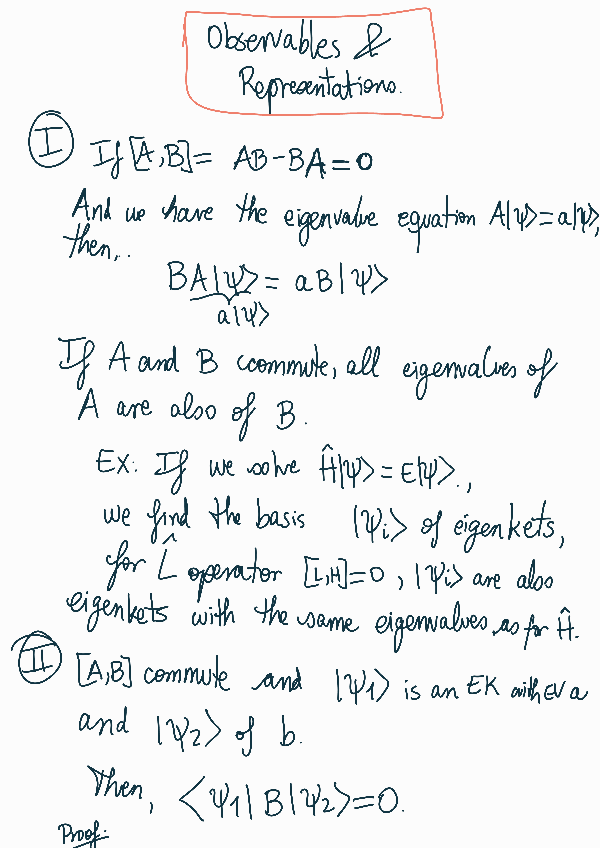 Observables &
Representations.
I If [A,B] = AB-BA=0
And we have the eigenvalue equation A|ψ>=a|ψ>,
then,..
BA|ψ> = aB|ψ>
a|ψ>
If A and B commute, all eigenvalues of
A are also of B.
EX: If we solve Ĥ|ψ>=E|ψ>.,
we find the basis |ψi> of eigenkets,
for L̂ operator [L,H]=0, |ψi> are also
eigenkets with the same eigenvalues as for Ĥ.
II [A,B] commute and |ψ1> is an EK with EV a
and |ψ2> of b.
Then, <ψ1|B|ψ2>=0.
Proof: